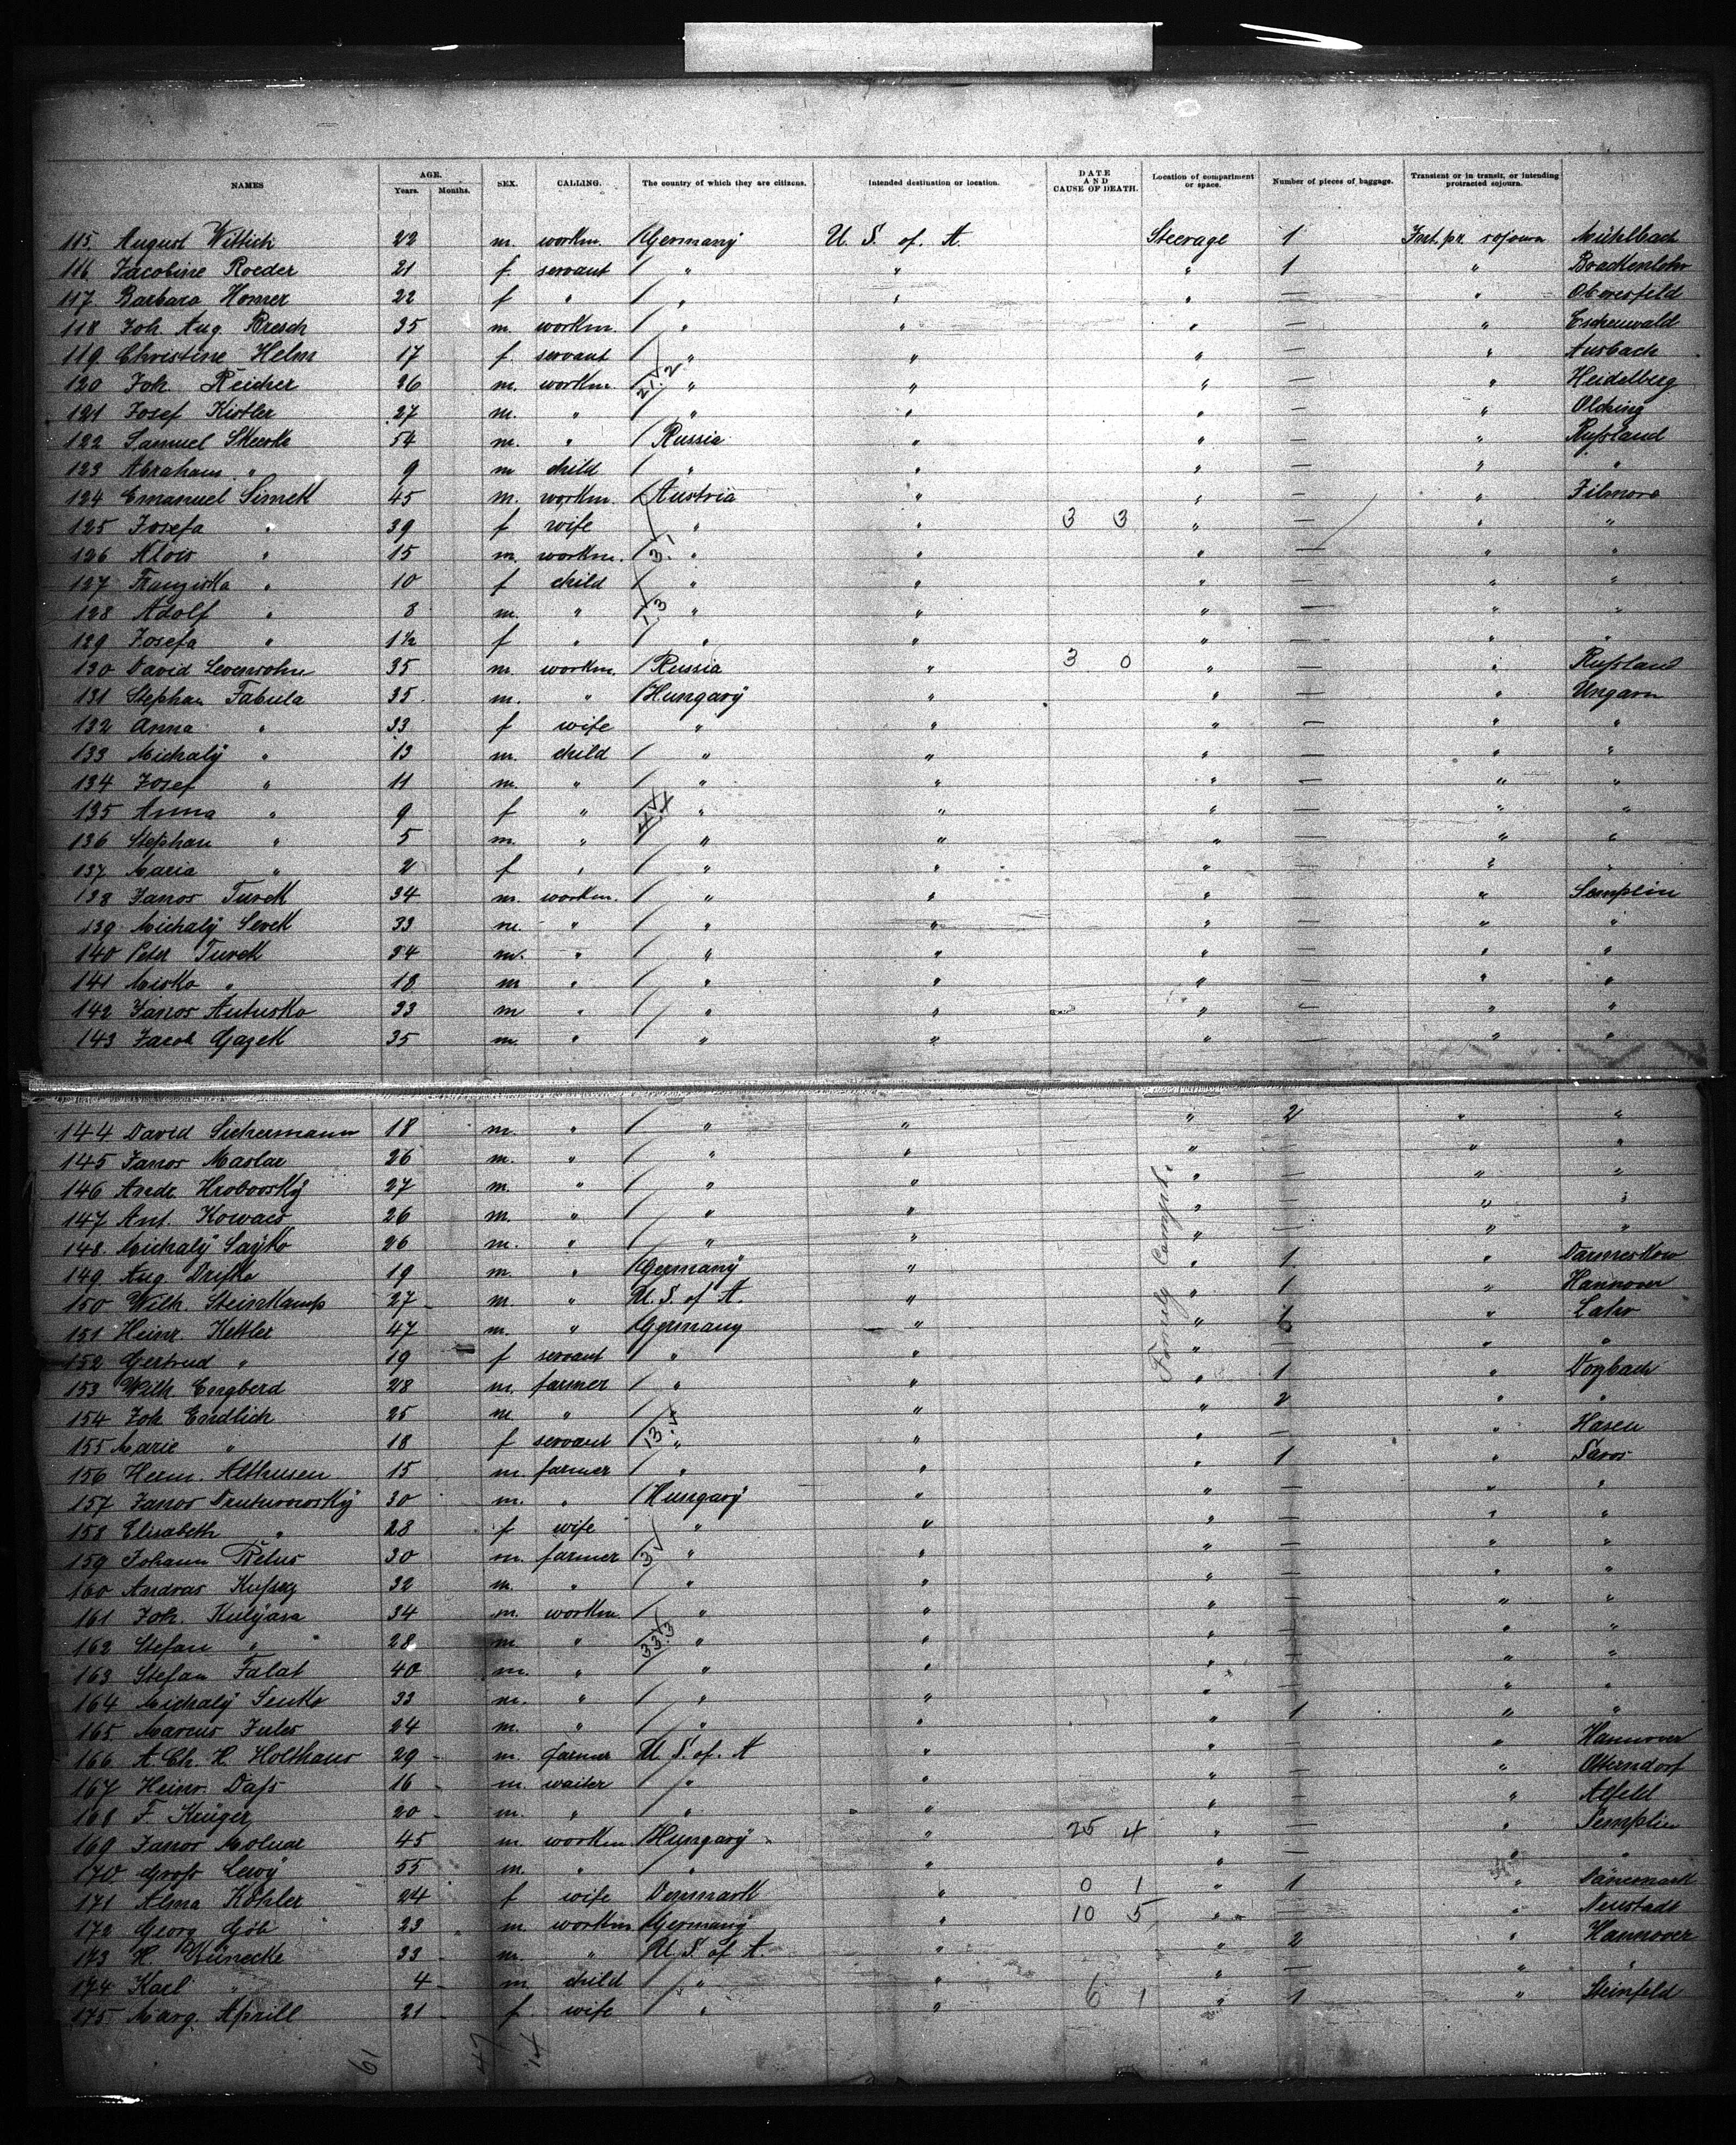 NAMES AGE. Years. Months. SEX. CALLING. The country of which they are citizens. Intended destination or location. DATE AND CAUSE OF DEATH. Location of compartment or space. Number of pieces of baggage. Transient or in transit, or intending protracted sojourn.
115. August Wittich 22 m. workm. Germany U. S. of. A. Steerage 1 Int. pr. sojourn Mühlbach
116 Jacobine Roeder 21 f. servant " " " 1 "
117 Barbara Homer 22 f " " " " — " Oberesfeld
118 Joh. Aug. Bresch 35 m. workm. " " " — " Eschenwald
119. Christine Helm 17 f servant " " " — " Ansbach
120 Joh. Reicher 36 m. workm 21.2 " " " — " Heidelberg
121 Josef Kistler 27 m. " " " " — " Olching
122 Samuel 54 m. " Russia " " — " Rußland
123 Abraham " 9 m child " " " — " "
124 Emanuel Simek 45 m. workm Austria " " — "
125 Josefa " 39 f wife " " 3 3 " — " "
126 Alois " 15 m. workm. 3.1 " " " — " "
127 Franziska " 10 f child " " " — " "
128 Adolf " 8 m. " 1.3 " " " — " "
129 Josefa " 1½ f " " " " — " "
130 David 35 m. workm. Russia " 3 0 " — " Rußland
131 Stephan Fabula 35. m. " Hungary " " — " Ungarn
132 Anna " 33 f wife " " " — " "
133 Michalÿ " 13 m. child " " " — " "
134 Josef " 11 m. " " " " — " "
135 Anna " 9 f " " " " — " "
136 Stephan " 5 m. " " " " — " "
137 Maria " 2 f " " " " — " "
138 Janos Turek 34 m. workm. " " " — " Semplin
139. Michalÿ Serek 33 m. " " " " — " "
140 Peter Turek 34 m. " " " " — " "
141 Misko " 18 m " " " " — " "
142 Janos Antusko 33 m " " " " — " "
143 Jacob Gazek 35 m. " " " " — " "
144 David Sichermann 18 m. " " " " 2 " "
145 Janos Maslar 26 m. " " " " — " "
146 Andr. Hrobovskÿ 27 m. " " " " — " "
147 Ant. Kowacs 26 m. " " " " — " "
148. Michalÿ Saÿko 26 m. " " " " — " "
149 Aug. 19 m. " Germany " " 1 "
150 Wilh. Steinkamp 27 m " U. S. of A. " " 1 " Hannover
151 Heinr. Kettler 47 m. " Germany " " " Lahr
152 Gertrud " 19 f servant " " " — " "
153 Wilh Engberd 28 m. farmer " " " 1 "
154 Joh Endlich 25 m. " " " " 2 " "
155 Marie " 18 f servant 13. " " " — " Hasen
156 Herm. Althusen 15 m. farmer " " " 1 " Saros
157 Janos 30 m. " Hungary " " — " "
158 Elisabeth " 28 f wife " " " — " "
159 Johann Petus 30 m. farmer 3 " " " — " "
160 Andras 32 m. " " " " — " "
161 Joh. Kulÿasa 34 m. workm. " " " — " "
162 Stefan " 28 m " 33.3 " " " — " "
163 Stefan Falat 40 m. " " " " — " "
164 Michalÿ Senko 33 m. " " " " — " "
165. Marcus Jules 24 m. " " " " 1 " "
166 A. Ch. H. Holthaus 29 m. farmer U. S. of. A " " — " Hannover
167 Heinr. Daſs 16 m. waiter " " " — " Otterndorf
168 F. Krüger 20 m. " " " " — " Alfeld
169 Janos Molnar 45 m. workm. Hungary " 25 4 " — " Semplin
170 Groß Lewÿ 55 m. " " " " — " "
171 Alma Köhler 24 f wife Denmark " 0 1 " 1 " Dänemark
172 Georg Göb 23 m. workm Germany " 10 5 " — " Neustadt
173 H. Künecke 33 m. " U. S. of A. " " 2 " Hannover
174 Karl " 4 m. child " " " — " "
175 Marg. Aprill 21 f wife " " 6 1 " 1 " Steinfeld
Family Compt.
61 47 14